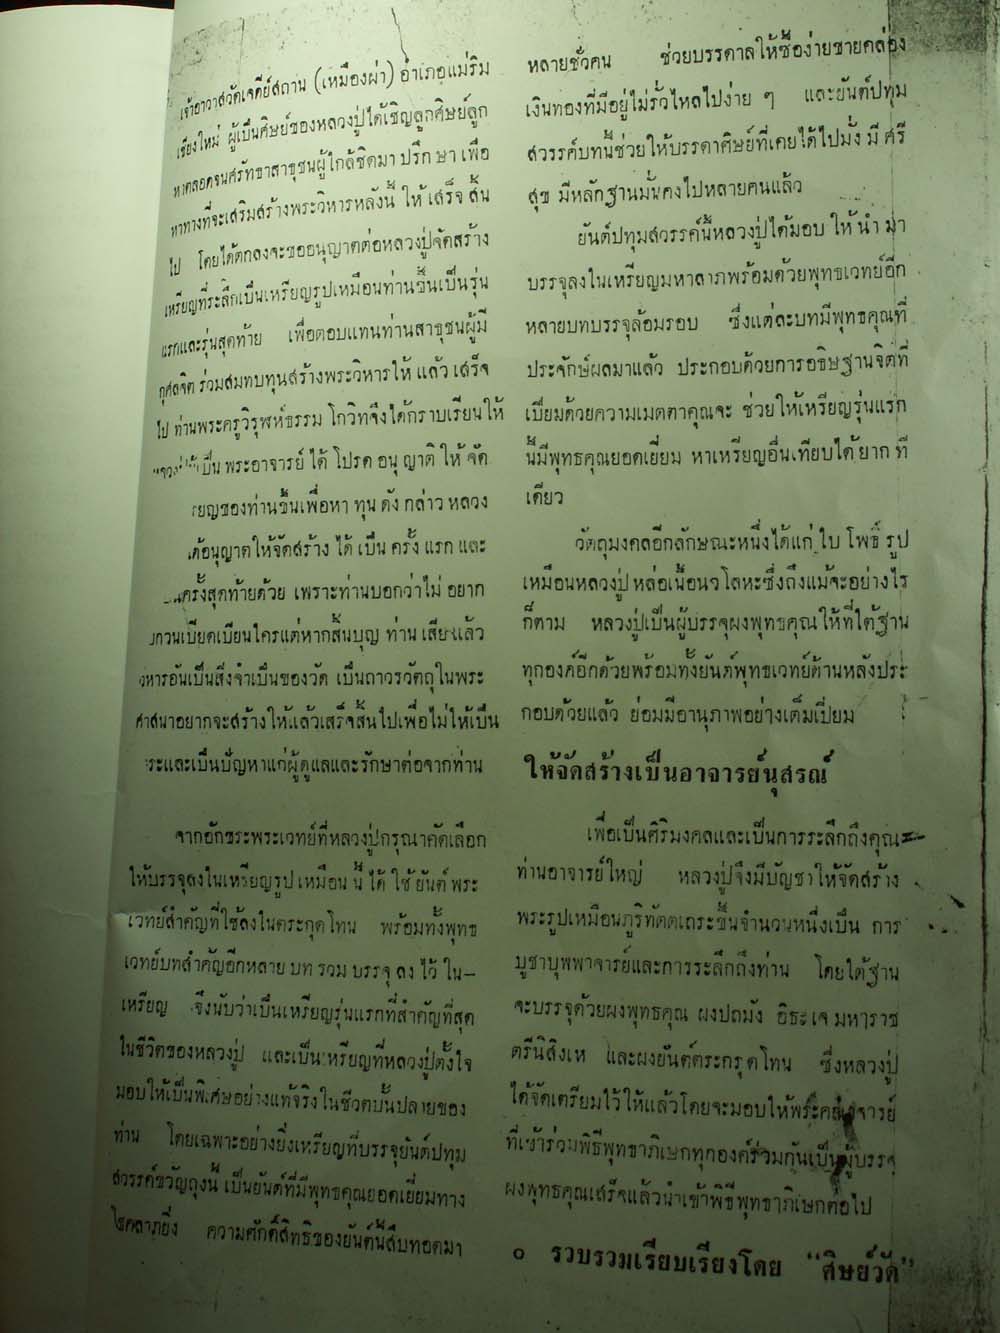 เจ้าอาวาสวัดเจดีย์สถาน (เหมืองผ่า) อำเภอแม่ริม
เชียงใหม่ ผู้เป็นศิษย์ของหลวงปู่ได้เชิญลูกศิษย์ลูก
หาตลอดจนศรัทธาสาธุชนผู้ใกล้ชิดมา ปรึก ษา เพื่อ
หาทางที่จะเสริมสร้างพระวิหารหลังนี้ ให้ เสร็จ สิ้น
ไป โดยได้ตกลงจะขออนุญาตต่อหลวงปู่จัดสร้าง
เหรียญที่ระลึกเป็นเหรียญรูปเหมือนท่านขึ้นเป็นรุ่น
แรกและรุ่นสุดท้าย เพื่อตอบแทนท่านสาธุชนผู้มี
กุศลจิต ร่วมสมทบทุนสร้างพระวิหารให้ แล้ว เสร็จ
ไป ท่านพระครูวิรุฬห์ธรรม โกวิทจึงได้กราบเรียนให้
เป็น พระอาจารย์ ได้ โปรด อนุ ญาติ ให้ จัด
รียญของท่านขึ้นเพื่อหา ทุน ดัง กล่าว หลวง
ได้อนุญาตให้จัดสร้าง ได้ เป็น ครั้ง แรก และ
นครั้งสุดท้ายด้วย เพราะท่านบอกว่าไม่ อยาก
บกวนเบียดเบียนใครแต่หากสิ้นบุญ ท่าน เสียแล้ว
วิหารอันเป็นสิ่งจำเป็นของวัด เป็นถาวรวัตถุในพระ
ศาสนาอยากจะสร้างให้แล้วเสร็จสิ้นไปเพื่อไม่ให้เป็น
ระและเป็นปัญหาแก่ผู้ดูแลและรักษาต่อจากท่าน
จากอักขระพระเวทย์ที่หลวงปู่กรุณาคัดเลือก
ให้บรรจุลงในเหรียญรูป เหมือน นี้ ได้ ใช้ ยันต์ พระ
เวทย์สำคัญที่ใช้ลงในตระกุดโทน พร้อมทั้งพุทธ
เวทย์บทสำคัญอีกหลาย บท รวม บรรจุ ลง ไว้ ใน–
เหรียญ จึงนับว่าเป็นเหรียญรุ่นแรกที่สำคัญที่สุด
ในชีวิตของหลวงปู่ และเป็นเหรียญที่หลวงปู่ตั้งใจ
มอบให้เป็นพิเศษอย่างแท้จริงในชีวิตบั้นปลายของ
ท่าน โดยเฉพาะอย่างยิ่งเหรียญที่บรรจุยันต์ปทุม
สวรรค์ขวัญถุงนี้ เป็นยันต์ที่มีพุทธคุณยอดเยี่ยมทาง
โชคลาภยิ่ง ความศักดิ์สิทธิของยันต์นี้สืบทอดมา
หลายชั่วคน ช่วยบรรดาลให้ซื้อง่ายขายคล่อง
เงินทองที่มีอยู่ไม่รั่วไหลไปง่าย ๆ และยันต์ปทุม
สวรรค์บทนี้ช่วยให้บรรดาศิษย์ที่เคยได้ไปมั่ง มี ศรี
สุข มีหลักฐานมั่นคงไปหลายคนแล้ว
ยันต์ปทุมสวรรค์นี้หลวงปู่ได้มอบ ให้ นำ มา
บรรจุลงในเหรียญมหาลาภพร้อมด้วยพุทธเวทย์อีก
หลายบทบรรจุล้อมรอบ ซึ่งแต่ละบทมีพุทธคุณที่
ประจักษ์ผลมาแล้ว ประกอบด้วยการอธิษฐานจิตที่
เปี่ยมด้วยความเมตตาคุณจะ ช่วยให้เหรียญรุ่นแรก
นี้มีพุทธคุณยอดเยี่ยม หาเหรียญอื่นเทียบได้ ยาก ที
เดียว
วัตถุมงคลอีกลักษณะหนึ่งได้แก่ ใบ โพธิ์ รูป
เหมือนหลวงปู่ หล่อเนื้อนวโลหะซึ่งถึงแม้จะอย่างไร
ก็ตาม หลวงปู่เป็นผู้บรรจุผงพุทธคุณให้ที่ใต้ฐาน
ทุกองค์อีกด้วยพร้อมทั้งยันต์พุทธเวทย์ด้านหลังประ
กอบด้วยแล้ว ย่อมมีอานุภาพอย่างเต็มเปี่ยม
ให้จัดสร้างเป็นอาจารย์นุสรณ์
เพื่อเป็นศิริมงคลและเป็นการระลึกถึงคุณ
ท่านอาจารย์ใหญ่ หลวงปู่จึงมีบัญชาให้จัดสร้าง
พระรูปเหมือนภูริทัตตเถระขึ้นจำนวนหนึ่งเป็น การ
บูชาบุพพาจารย์และการระลึกถึงท่าน โดยใต้ฐาน
จะบรรจุด้วยผงพุทธคุณ ผงปถมัง อิธะเจ มหาราช
ตรีนิสิงเห และผงยันต์ตระกรุดโทน ซึ่งหลวงปู่
ได้จัดเตรียมไว้ให้แล้วโดยจะมอบให้พระคณาจารย์
ที่เข้าร่วมพิธีพุทธาภิเษกทุกองค์ร่วมกันเป็นผู้บรรจุ
ผงพุทธคุณเสร็จแล้วนำเข้าพิธีพุทธาภิเษกต่อไป
๐ รวบรวมเรียบเรียงโดย “ศิษย์วัด”